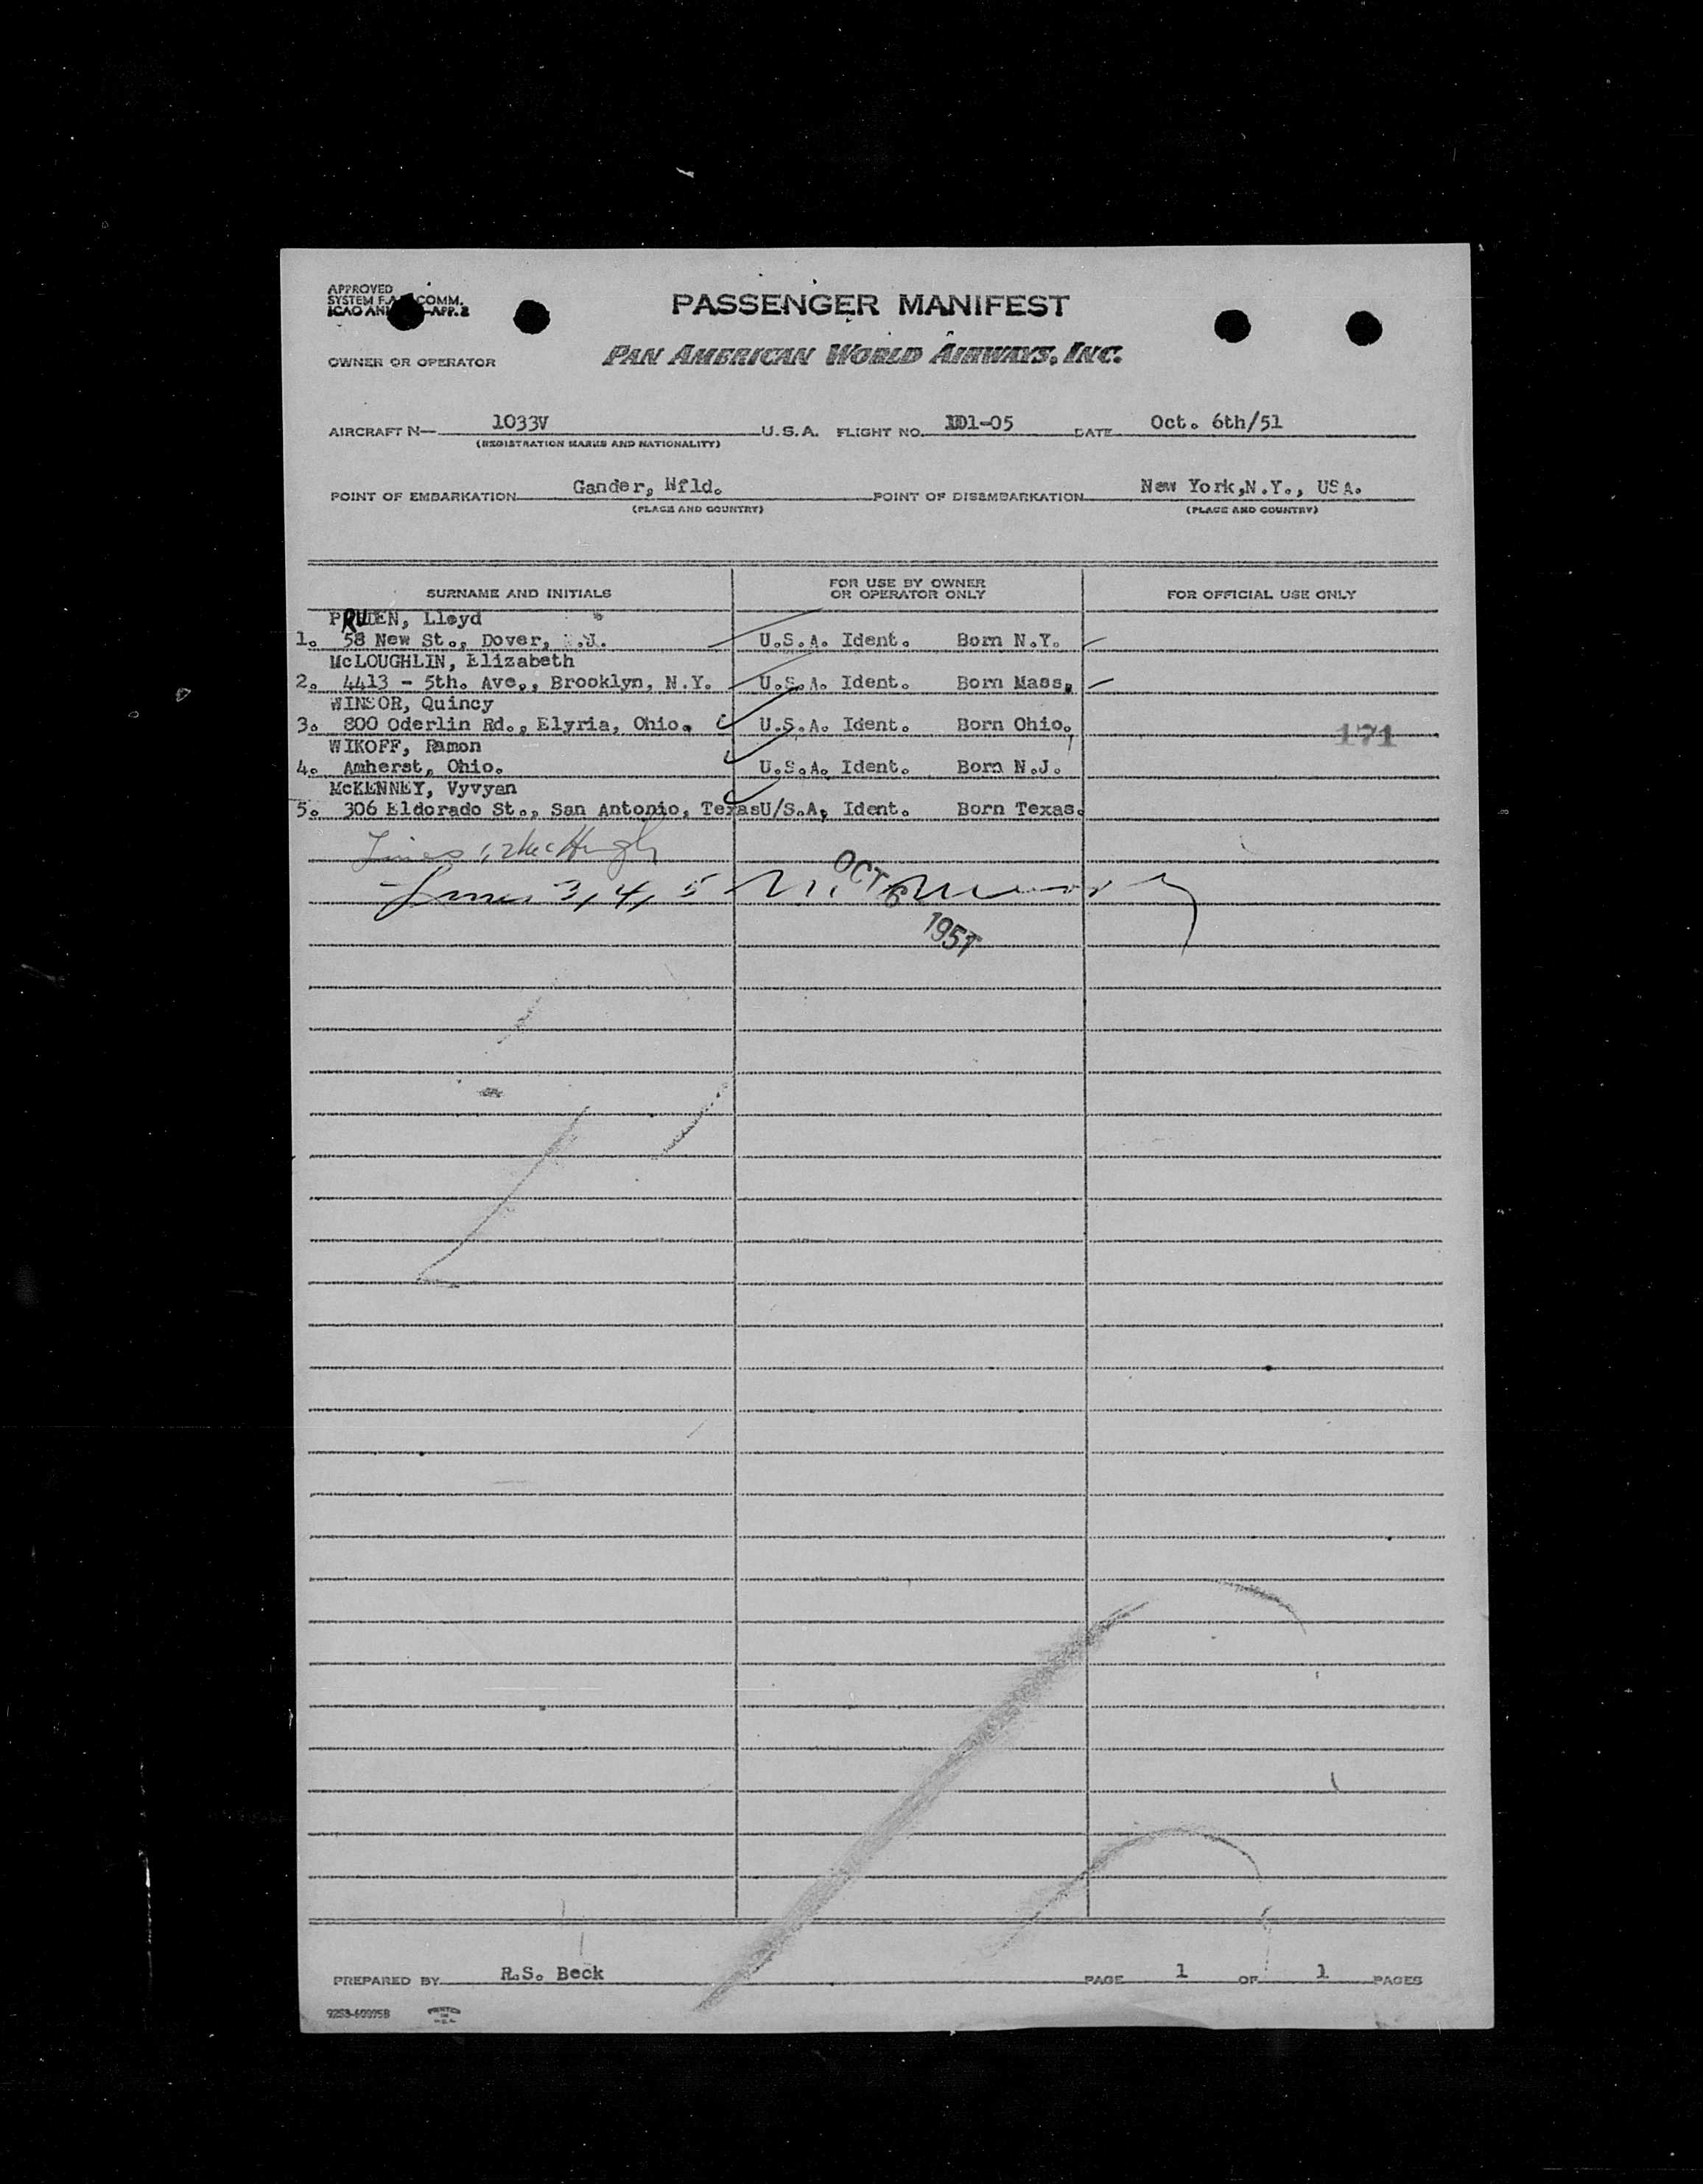 APPROVED
SYSTEM COMM.
ICAO APP. 2
PASSENGER MANIFEST
OWNER OR OPERATOR
PAN AMERICAN WORLD AIRWAYS, INC.
AIRCRAFT N— 1033V U.S.A. FLIGHT NO. 101-05 DATE Oct. 6th/51
(REGISTRATION MARKS AND NATIONALITY)
POINT OF EMBARKATION Gander, Nfld. POINT OF DISEMBARKATION New York,N.Y., USA.
(PLACE AND COUNTRY) (PLACE AND COUNTRY)
SURNAME AND INITIALS FOR USE BY OWNER OR OPERATOR ONLY FOR OFFICIAL USE ONLY
PRUDEN, Lloyd
1. 58 New St., Dover, N.J. U.S.A. Ident. Born N.Y.
McLOUGHLIN, Elizabeth
2. 4413 - 5th. Ave., Brooklyn, N.Y. U.S.A. Ident. Born Mass.
WINSOR, Quincy
3. 800 Oderlin Rd., Elyria, Ohio. U.S.A. Ident. Born Ohio.
171
WIKOFF, Ramon
4. Amherst, Ohio. U.S.A. Ident. Born N.J.
McKENNEY, Vyvyan
5. 306 Eldorado St., San Antonio, Texas U/S.A. Ident. Born Texas.
Lines 1, 2 McHugh
Lines 3, 4, 5
OCT 6 1951
PREPARED BY R.S. Beck PAGE 1 OF 1 PAGES
PRINTED
IN
U.S.A.